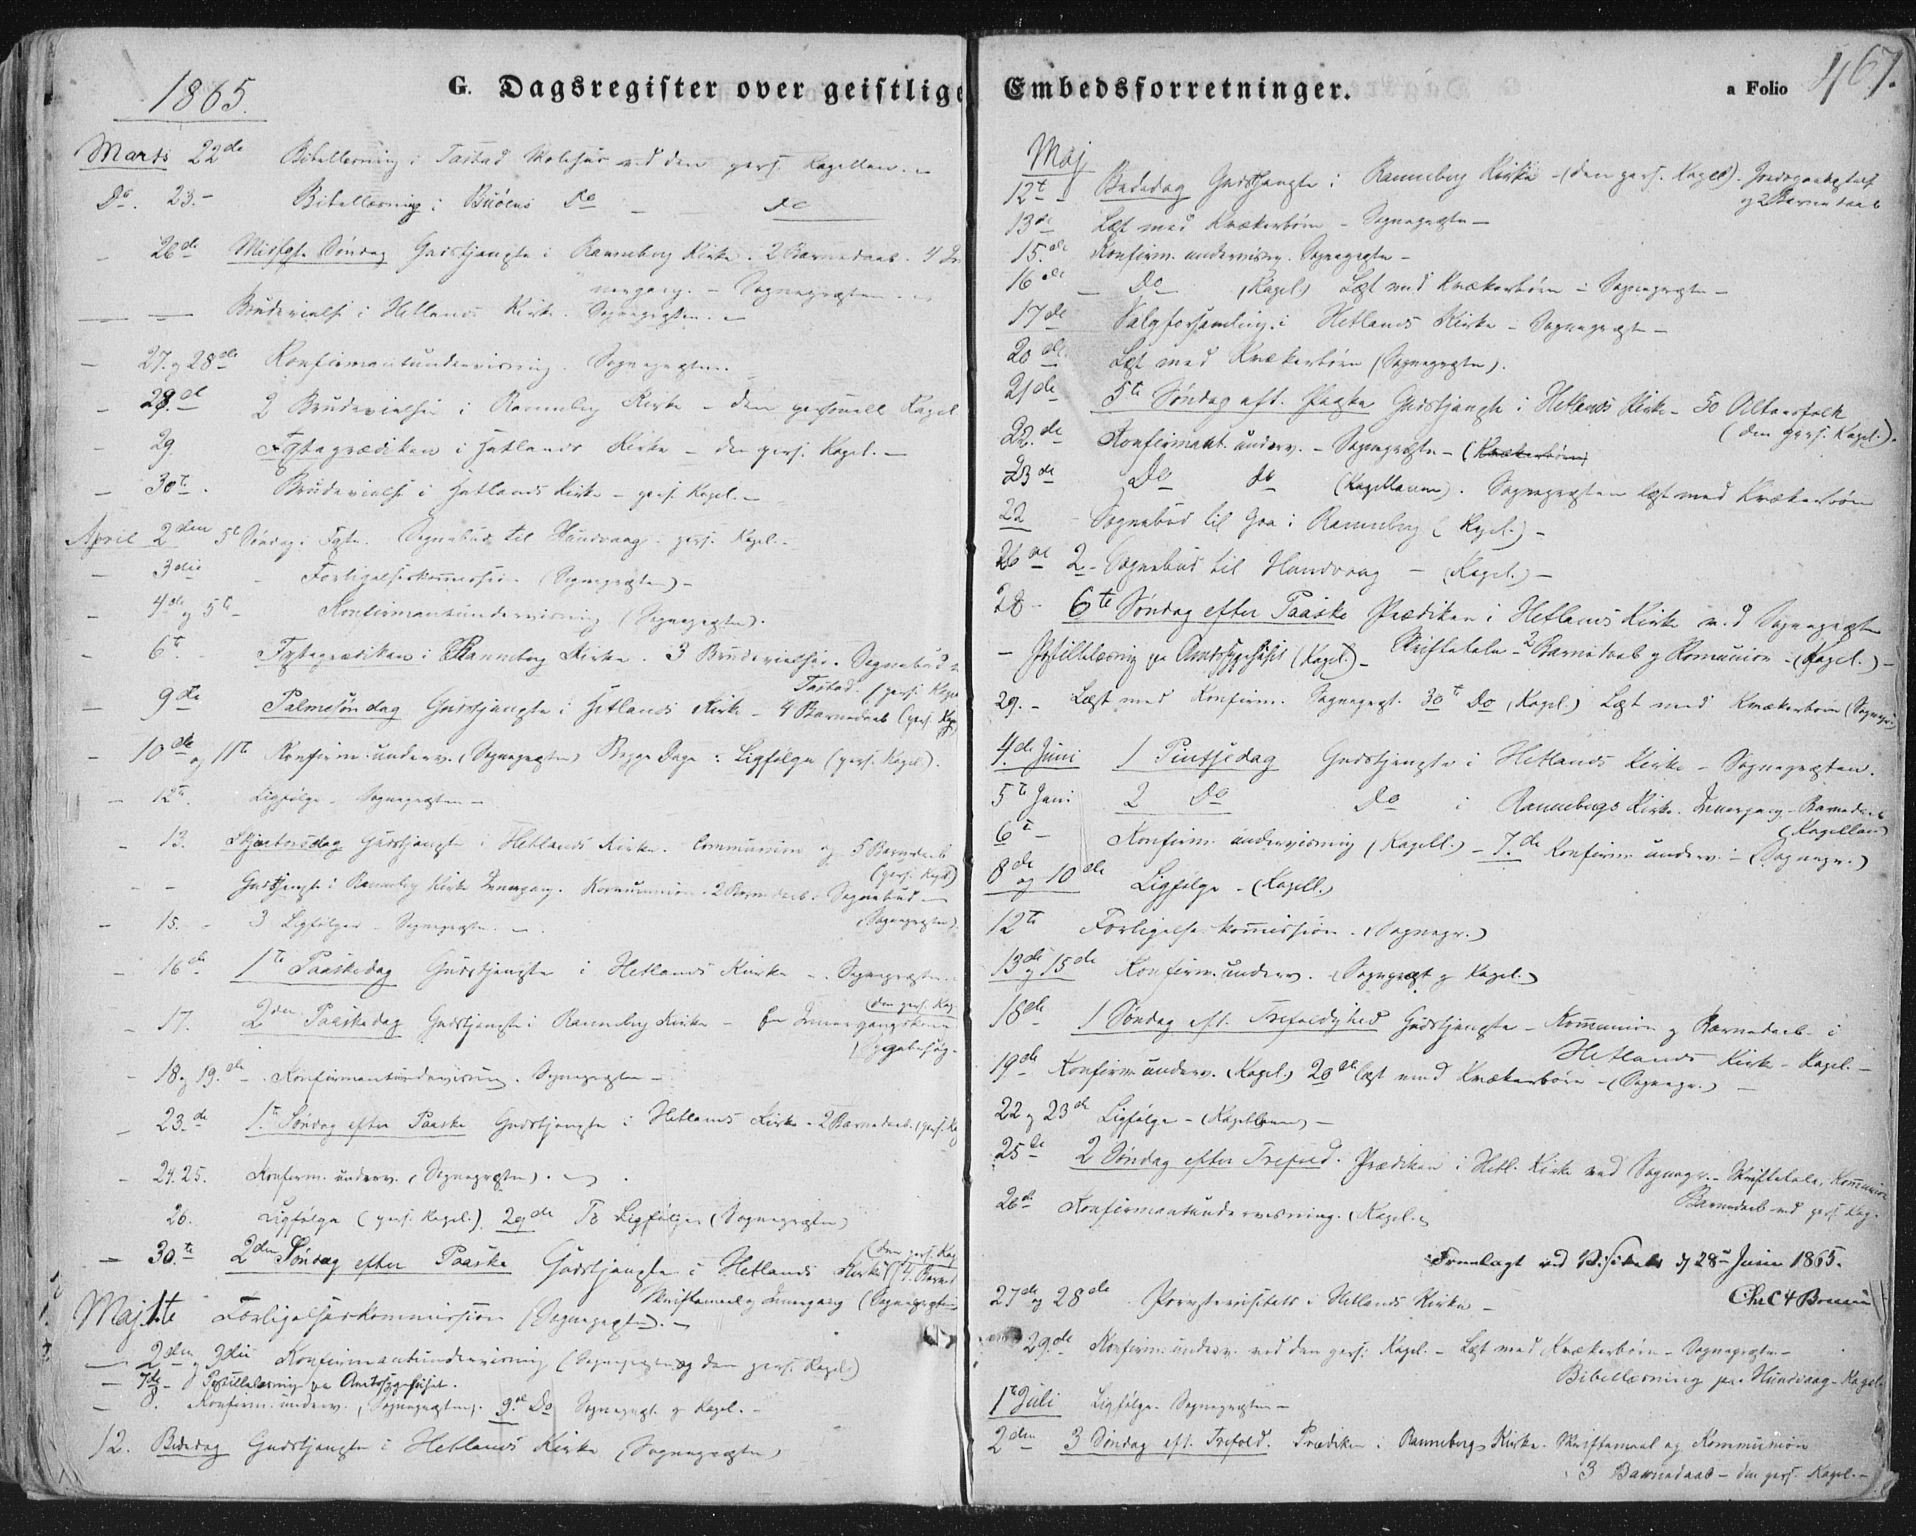 1865.
G. Dagsregister over geistlige
Marts 22de Bibellæsning i Tastad Skolehus ved den pers. Kapellan. –
Do. 23. – Bibellæsning i Buøens Do – Do
– 26de Midfst. Søndag Gudstjeneste i Ranneberg Kirke. 2 Barnedaab. 4
– Sognepræsten. –
– – Brudevielse i Hetlands Kirke. Sognepræsten. –
– 27. og 28de Konfirmantundervisning. Sognepræsten.
– 29.de 2 Brudevielser i Ranneberg Kirke – den personelle Kapel
– 29 Fasteprædiken i Hetlands Kirke – den pers. Kapel. –
– 30te. Brudevielse i Hetlands Kirke – pers. Kapel. –
April 2den 5te Søndag i Faste. Sognebud til Hundvaag. pers. Kapel. –
– 3die – Forligelseskommission. (Sognepræsten) –
– 4de og 5te – Konfirmantundervisning (Sognepræsten).
– 6te. – Fasteprædiken i Ranneberg Kirke. 3 Brudevielser. Sognebud
Tastad. (pers. Kapel
– 9de Palmesøndag Gudstjeneste i Hetlands Kirke – 4 Barnedaab (pers. Kap
– 10de og 11te Konfirm. underv. (Sognepræsten) Begge Dage: Ligfølge (pers. Kapel).
– 12te. Ligfølge – Sognepræsten –
– 13. Skjærtorsdag Gudstjeneste i Hetlands Kirke. Communion og 5 Barnedaab
(pers. Kapel)
– – Gudstjeneste i Ranneberg Kirke Kommunion. 2 Barnedaab. Sognebud –
(Sognepræsten)
– 15. – 3 Ligfølger – Sognepræsten. –
– 16de 1te Paaskedag Gudstjeneste i Hetlands Kirke – Sognepræsten.
(den pers. Kap
– 17. 2den Paaskedag Gudstjeneste i Ranneberg Kirke – En
Sygebesøg.
– 18 og 19.de – Konfirmantundervisning. Sognepræsten –
– 23.de 1te Søndag efter Paaske Gudstjeneste i Hetlands Kirke – 2 Barnedaab. (pers. Ka
– 24. 25. Konfirm. underv. (Sognepræsten). –
26. Ligfølge (pers. Kapel.). 29de To Ligfølger (Sognepræsten)
(den pers. Kap
– 30.te 2den Søndag efter Paaske Gudstjeneste i Hetlands Kirke 4. Barned
Skriftemaal (Sognepræsten
Maj 1te Forligelseskommission (Sognepræsten). –
– 2den og 3die Konfirmantundervisning (Sognepræsten og den pers. Kapel)
– 7de – Postillelæsning paa Amtssygehuset.
– 8. Konfirm. underv. (Sognepræsten). 9de Do Sognepræst. og Kapel. –
12. Bededag Gudstjeneste i Hetlands Kirke (Sognepræsten)
Embedsforretninger.
a Folio 467.
Maj
12te Bededag Gudstjeneste i Ranneberg Kirke – (den pers. Kapel).
og 2 Barnedaab
13de Læst med Kvækerbørn – Sognepræsten –
15.de Konfirm. undervisn. Sognepræsten –
16de – Do (Kapel) Læst med Kvækerbørn – Sognepræsten –
17de Valgforsamling i Hetlands Kirke – Sognepræst –
20de. Læst med Kvækerbørn (Sognepræsten).
21de 5te Søndag eft. Paaske Gudstjeneste i Hetlands Kirke – 50 Altersfolk
(den pers. Kapel.).
22.de Konfirmant. underv. – Sognepræsten – (Kvækerbørn)
23de Do do (Kapellanen). Sognepræsten læst med Kvækerbørn
22 – Sognebud til Goa i Ranneberg (Kapel.) –
26de 2 – Sognebud til Hundvaag – (Kapel.) –
28 – 6te Søndag efter Paaske Prædiken i Hetlands Kirke ved Sognepræst
– Postillelæsning paa Amtssygehuset (Kapel.) – Skriftetale – 2 Barnedaab og Komunion – (Kapel.) –
29. – Læst med Konfirm. Sognepræst. 30te Do (Kapel.) Læst med Kvækerbørn (Sognepr.)
4de Juni 1 Pintsedag Gudstjeneste i Hetlands Kirke – Sognepræsten.
5te Juni 2 Do Do i Rannebergs Kirke. – Barnedaab
(Kapellan)
6te – Konfirm. undervisning (Kapell.) – 7.de Konfirm. underv. – (Sognepr.)
8de og 10de Ligfølge – (Kapell.)
12te Forligelseskommission. (Sognepr.)
13de og 15de Konfirm. underv. (Sognepræst og Kapel.)
18de 1 Søndag eft. Trefoldighed Gudstjeneste – Kommunion og Barnedaab i
Hetlands Kirke – Kapel. –
19de Konfirm. underv. (Kapel.) 20de læst med Kvækerbørn – (Sognepr.) –
22 og 23de Ligfølge – (Kapellanen) –
25de 2 Søndag efter Trefold. Prædiken i Hetl. Kirke ved Sognepr. – Skriftetale, Kommunion
Barnedaab ved pers. Kap.
26de Konfirmantundervisning. (Kapel.)
Fremlagt ved Visitats d 28de Juni 1865.
27de og 28de Provstevisitats i Hetlands Kirke –
29.de Konfirm. underv. ved den pers. Kapel. – Læst med Kvækerbørn – Sognepræsten –
Bibellæsning paa Hundvaag – Kapel.
1te Juli Ligfølge. Sognepræsten –
2den 3 Søndag eft. Trefold. Prædiken i Rannebergs Kirke. Skriftemaal og Kommunion
3 Barnedaab – den pers. Kapel. –